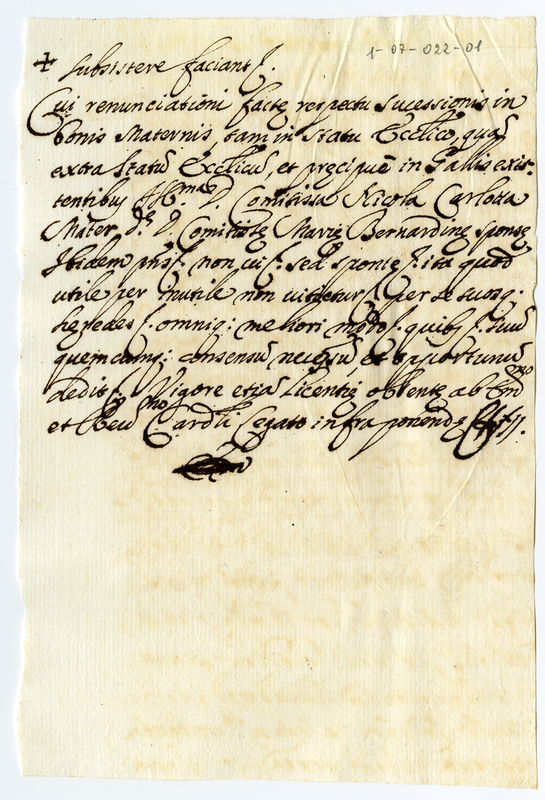 1-07-022-01
+ subsistere faciant f.
Cui renunciationi factę respectu sucessionis in
bonis Maternis, tam in Statu Ecclico, quā
extra Statū Ecclicū, et pręcipuè in Gallis exis-
tentibus Illma D. Comitissa Nicola Carlotta
Mater d.ę D. Comitissę Marię Bernardinę sponsę
Ibidem pns f. non vi f. sed sponte f. ita quod
utile per inutile non vitietur f. per se suosq.
heredes f. omniq; meliori modo f. quibus f. suū
quemcumq; consensū necessū, et opportunū
dedit f. Vigore etiā Licentię obtentę ab Emo
et Rmo D. Cardli Legato infra ponendę